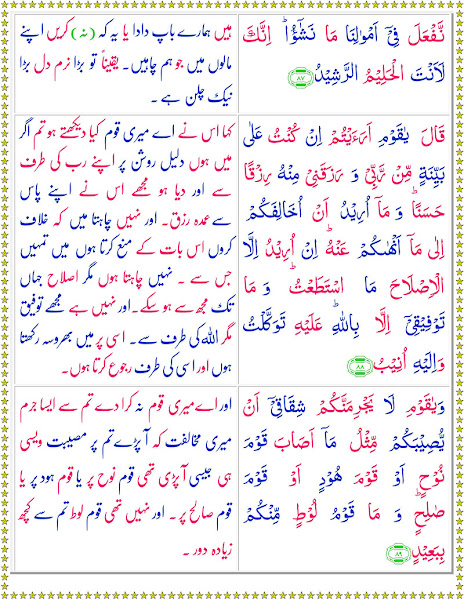 نَّفْعَلَ فِيْۤ اَمْوَالِنَا مَا نَشٰٓؤُا ؕ اِنَّكَ
لَاَنْتَ الْحَلِيْمُ الرَّشِيْدُ ﴿۸۷﴾
ہیں ہمارے باپ دادا یا یہ کہ (نہ) کریں اپنے
مالوں میں جو ہم چاہیں۔ یقیناً تو بڑا نرم دل بڑا
نیک چلن ہے ۔
قَالَ يٰقَوْمِ اَرَءَيْتُمْ اِنْ كُنْتُ عَلٰى
بَيِّنَةٍ مِّنْ رَّبِّيْ وَ رَزَقَنِيْ مِنْهُ رِزْقًا
حَسَنًا ؕ وَ مَاۤ اُرِيْدُ اَنْ اُخَالِفَكُمْ
اِلٰى مَاۤ اَنْهٰىكُمْ عَنْهُ ؕ اِنْ اُرِيْدُ اِلَّا
الْاِصْلَاحَ مَا اسْتَطَعْتُ ؕ وَ مَا
تَوْفِيْقِيْۤ اِلَّا بِاللّٰهِ ؕ عَلَيْهِ تَوَكَّلْتُ
وَاِلَيْهِ اُنِيْبُ ﴿۸۸﴾
کہا اس نے اے میری قوم کیا دیکھتے ہو تم اگر
میں ہوں دلیل روشن پر اپنے رب کی طرف
سے اور دیا ہو مجھے اس نے اپنے پاس
سے عمدہ رزق۔ اور نہیں چاہتا میں کہ خلاف
کروں اس بات کے منع کرتا ہوں میں تمہیں
جس سے ۔ نہیں چاہتا ہوں مگر اصلاح جہاں
تک مجھ سے ہو سکے۔ اور نہیں ہے مجھے توفیق
مگر اللہ کی طرف سے۔ اسی پر میں بھروسہ رکھتا
ہوں اور اسی کی طرف رجوع کرتا ہوں۔
وَيٰقَوْمِ لَا يَجْرِمَنَّكُمْ شِقَاقِيْۤ اَنْ
يُّصِيْبَكُمْ مِّثْلُ مَاۤ اَصَابَ قَوْمَ
نُوْحٍ اَوْ قَوْمَ هُوْدٍ اَوْ قَوْمَ
صٰلِحٍ ؕ وَ مَا قَوْمُ لُوْطٍ مِّنْكُمْ
بِبَعِيْدٍ ﴿۸۹﴾
اور اے میری قوم نہ کرا دے تم سے ایسا جرم
میری مخالفت کہ آ پڑے تم پر مصیبت ویسی
ہی جیسی آ پڑی تھی قوم نوح پر یا قوم ہود پر یا
قوم صالح پر ۔ اور نہیں تھی قوم لوط تم سے کچھ
زیادہ دور ۔